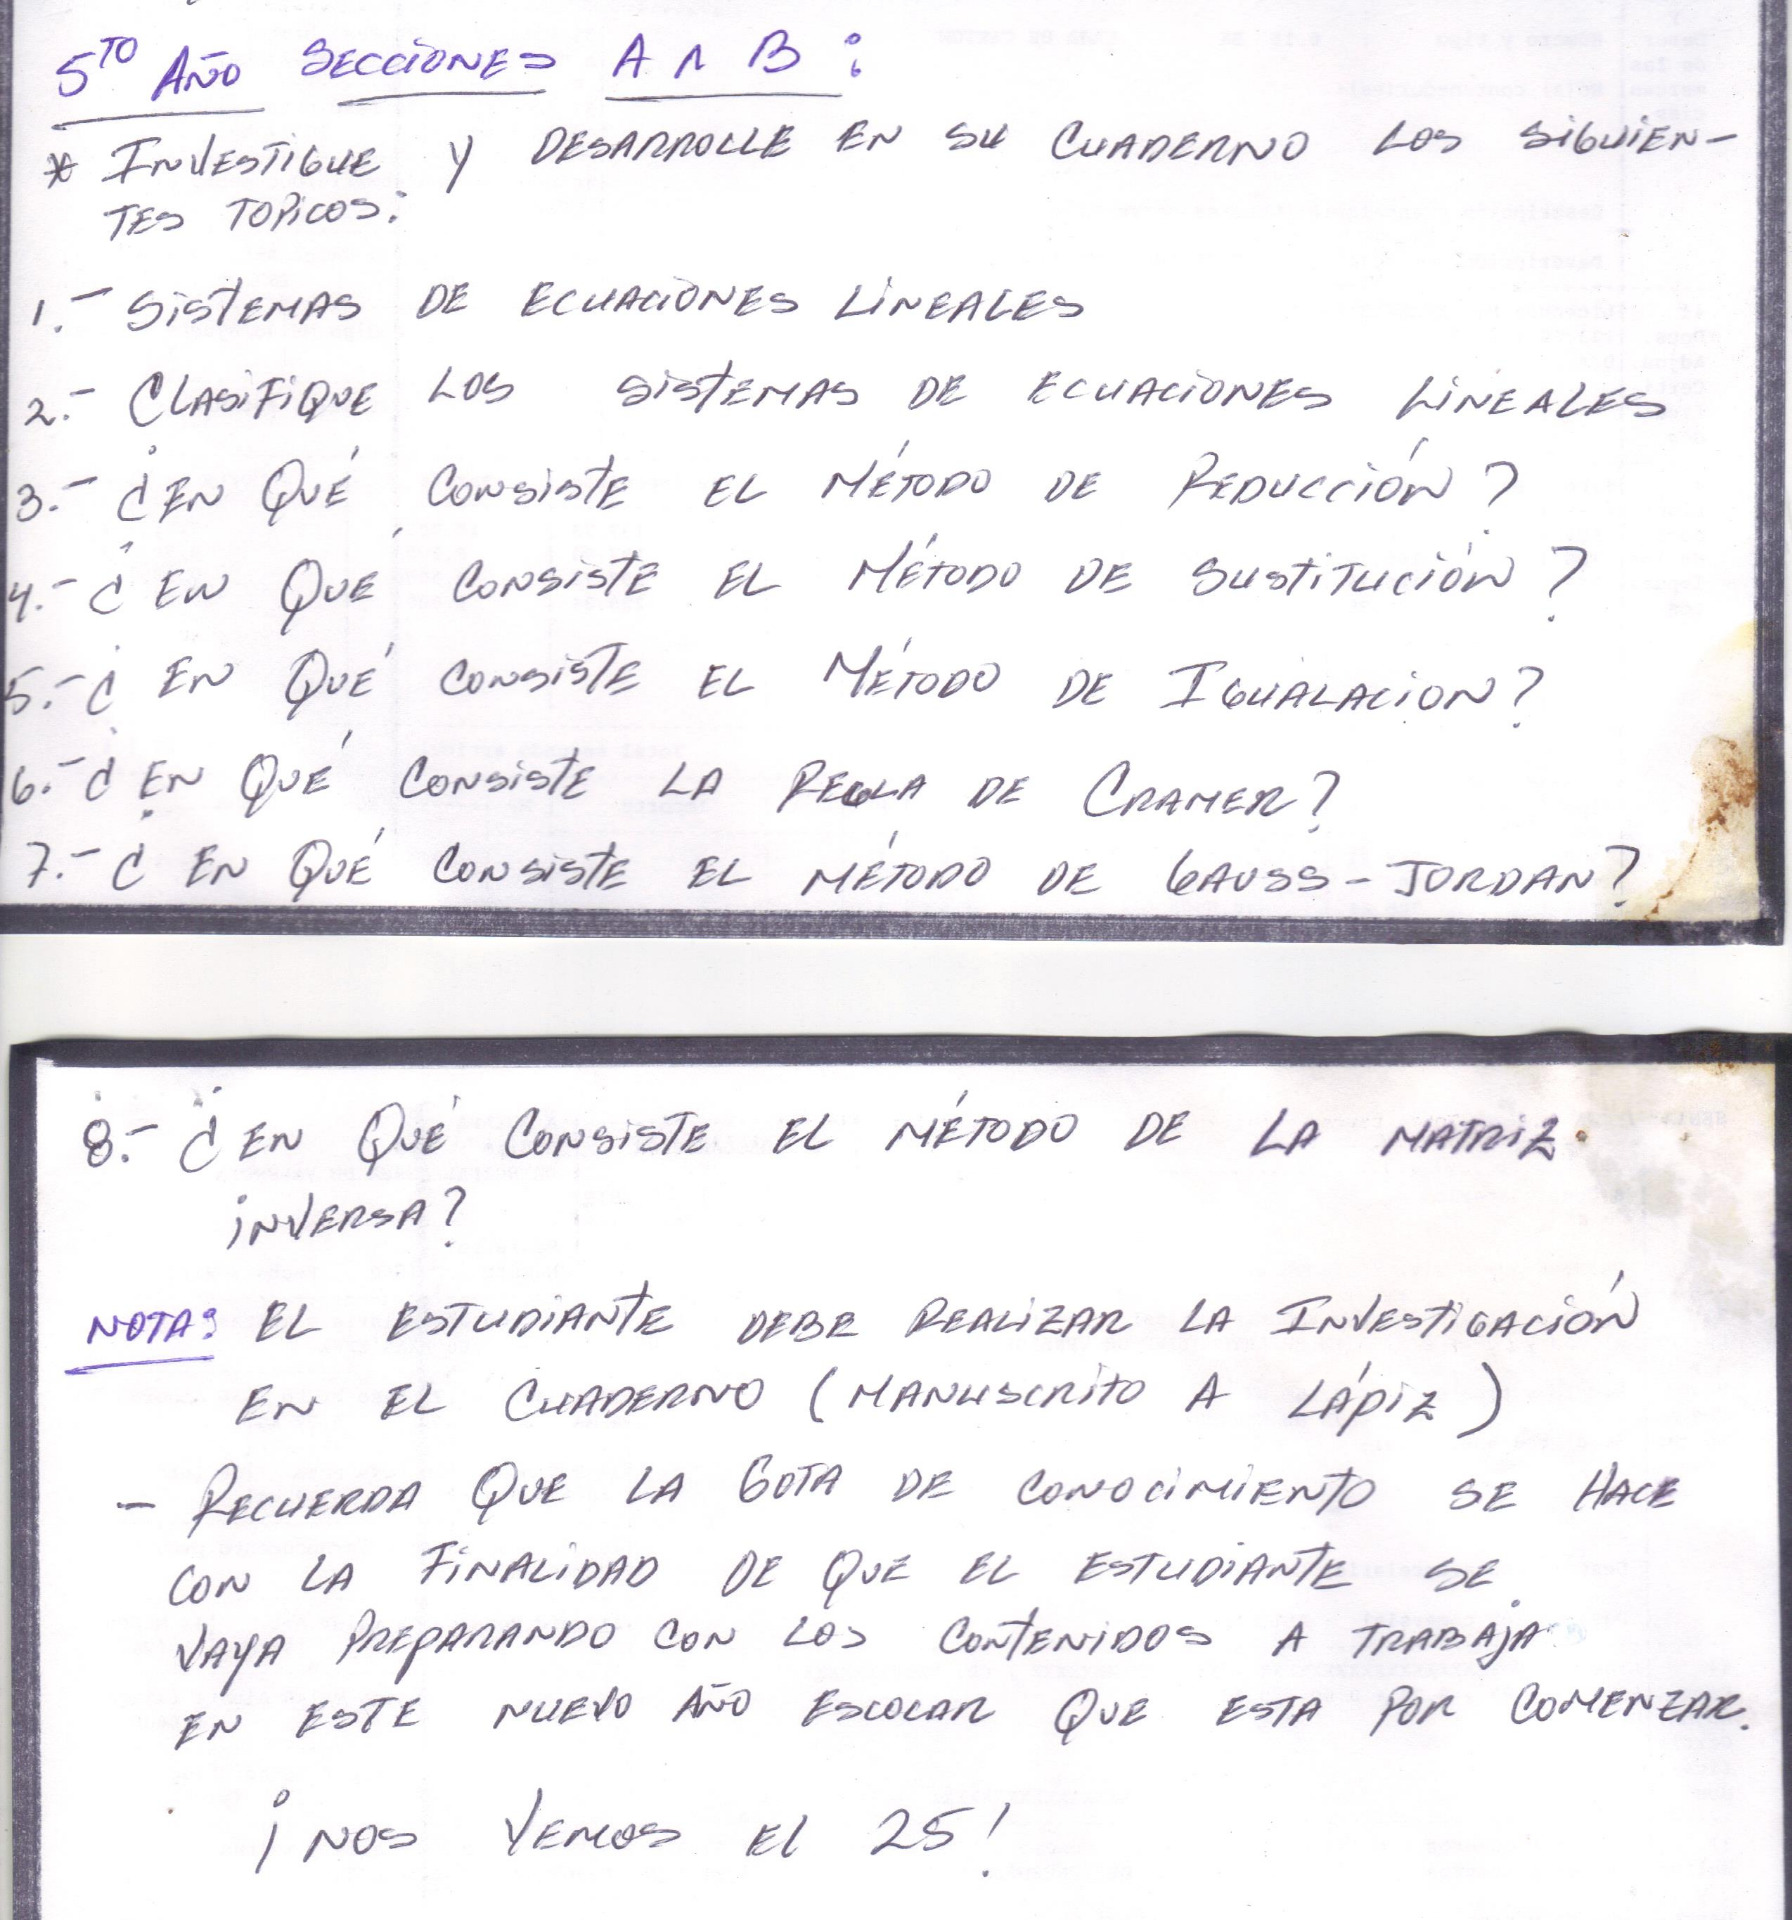 5TO AÑO SECCIONES A ∧ B:
* INVESTIGUE Y DESARROLLE EN SU CUADERNO LOS SIGUIEN-
TES TOPICOS:
1.- SISTEMAS DE ECUACIONES LINEALES
2.- CLASIFIQUE LOS SISTEMAS DE ECUACIONES LINEALES
3.- ¿EN QUÉ CONSISTE EL MÉTODO DE REDUCCIÓN?
4.- ¿EN QUÉ CONSISTE EL MÉTODO DE SUSTITUCIÓN?
5.- ¿EN QUÉ CONSISTE EL MÉTODO DE IGUALACION?
6.- ¿EN QUÉ CONSISTE LA REGLA DE CRAMER?
7.- ¿EN QUÉ CONSISTE EL MÉTODO DE GAUSS-JORDAN?
8.- ¿EN QUÉ CONSISTE EL MÉTODO DE LA MATRIZ
INVERSA?
NOTA: EL ESTUDIANTE DEBE REALIZAR LA INVESTIGACIÓN
EN EL CUADERNO (MANUSCRITO A LÁPIZ)
- RECUERDA QUE LA GOTA DE CONOCIMIENTO SE HACE
CON LA FINALIDAD DE QUE EL ESTUDIANTE SE
VAYA PREPARANDO CON LOS CONTENIDOS A TRABAJA
EN ESTE NUEVO AÑO ESCOLAR QUE ESTA POR COMENZAR.
¡NOS VEMOS EL 25!